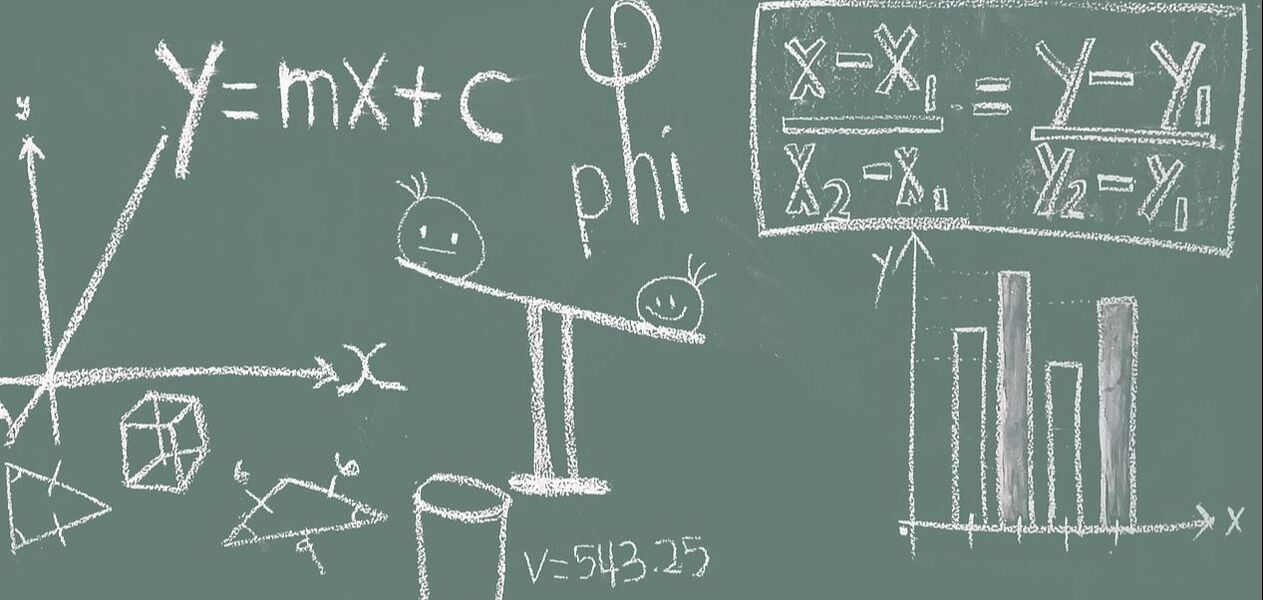 y = mx + c
φ
phi
x - x₁ / x₂ - x₁ = y - y₁ / y₂ - y₁
y
x
y
x
6
6
9
V=543.25